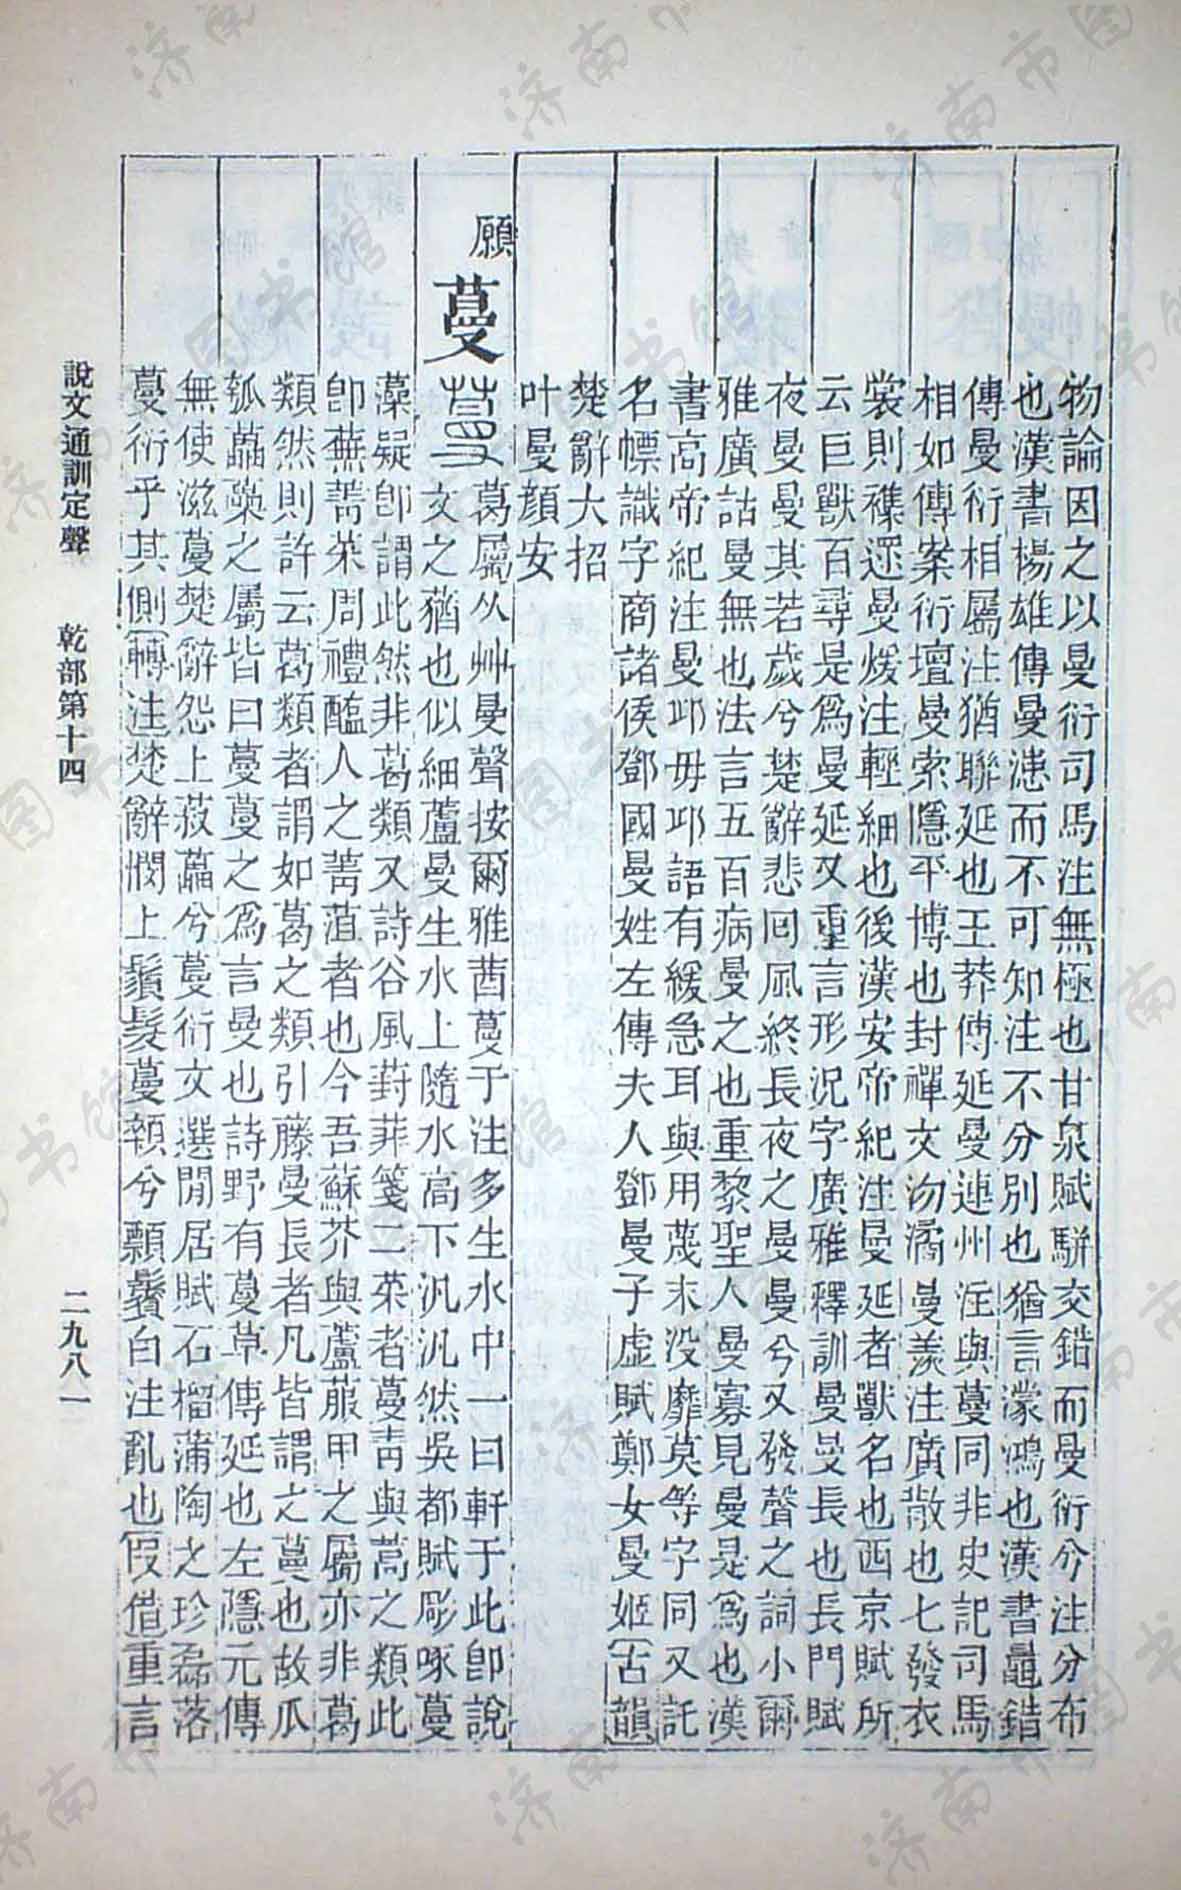 物論因之以曼衍司馬注無極也甘泉賦駢交錯而曼衍兮注分布
也漢書楊雄傳曼漶而不可知注不分別也猶言濛鴻也漢書鼂錯
傳曼衍相屬注猶聯延也王莽傳延曼連州注與蔓同非史記司馬
相如傳案衍壇曼索隱平博也封禪文沕潏曼羡注廣散也七發衣
裳則襍遝曼煖注輕細也後漢安帝紀注曼延者獸名也西京賦所
云巨獸百尋是爲曼延又重言形況字廣雅釋訓曼曼長也長門賦
夜曼曼其若歲兮楚辭悲回風終長夜之曼曼兮又發聲之詞小爾
雅廣詁曼無也法言五百病曼之也重黎聖人曼寡見曼是爲也漢
書高帝紀注曼邱毋邱語有緩急耳與用蔑末没靡莫等字同又託
名幖識字商諸侯鄧國曼姓左傳夫人鄧曼子虛賦鄭女曼姬古韻
楚辭大招
叶曼顔安
願
蔓葛屬从艸曼聲按爾雅茜蔓于注多生水中一曰軒于此卽說
文之蕕也似細蘆曼生水上隨水高下汎汎然吳都賦彫啄蔓
藻疑卽謂此然非葛類又詩谷風葑菲箋二菜者蔓菁與葍之類此
卽蕪菁菜周禮醢人之菁菹者也今吾蘇芥與蘆菔甲之屬亦非葛
類然則許云葛類者謂如葛之類引藤曼長者凡皆謂之蔓也故瓜
瓠藟蘽之屬皆曰蔓蔓之爲言曼也詩野有蔓草傳延也左隱元傳
無使滋蔓楚辭怨上菽藟兮蔓衍文選閒居賦石榴蒲陶之珍磊落
蔓衍乎其側轉注楚辭憫上鬚髮蔓頞兮顠鬢白注亂也假借重言
說文通訓定聲 乾部第十四 二九八一